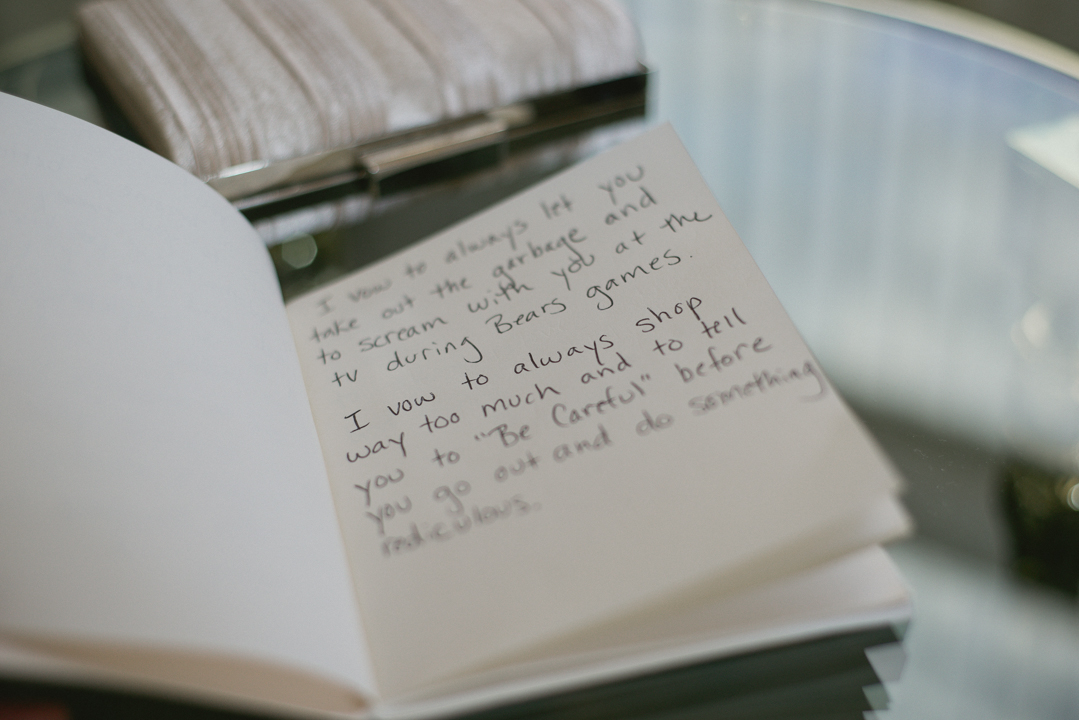 I vow to always let you
take out the garbage and
to scream with you at the
tv during Bears games.
I vow to always shop
way too much and to tell
you to "Be Careful" before
you go out and do something
rediculous.